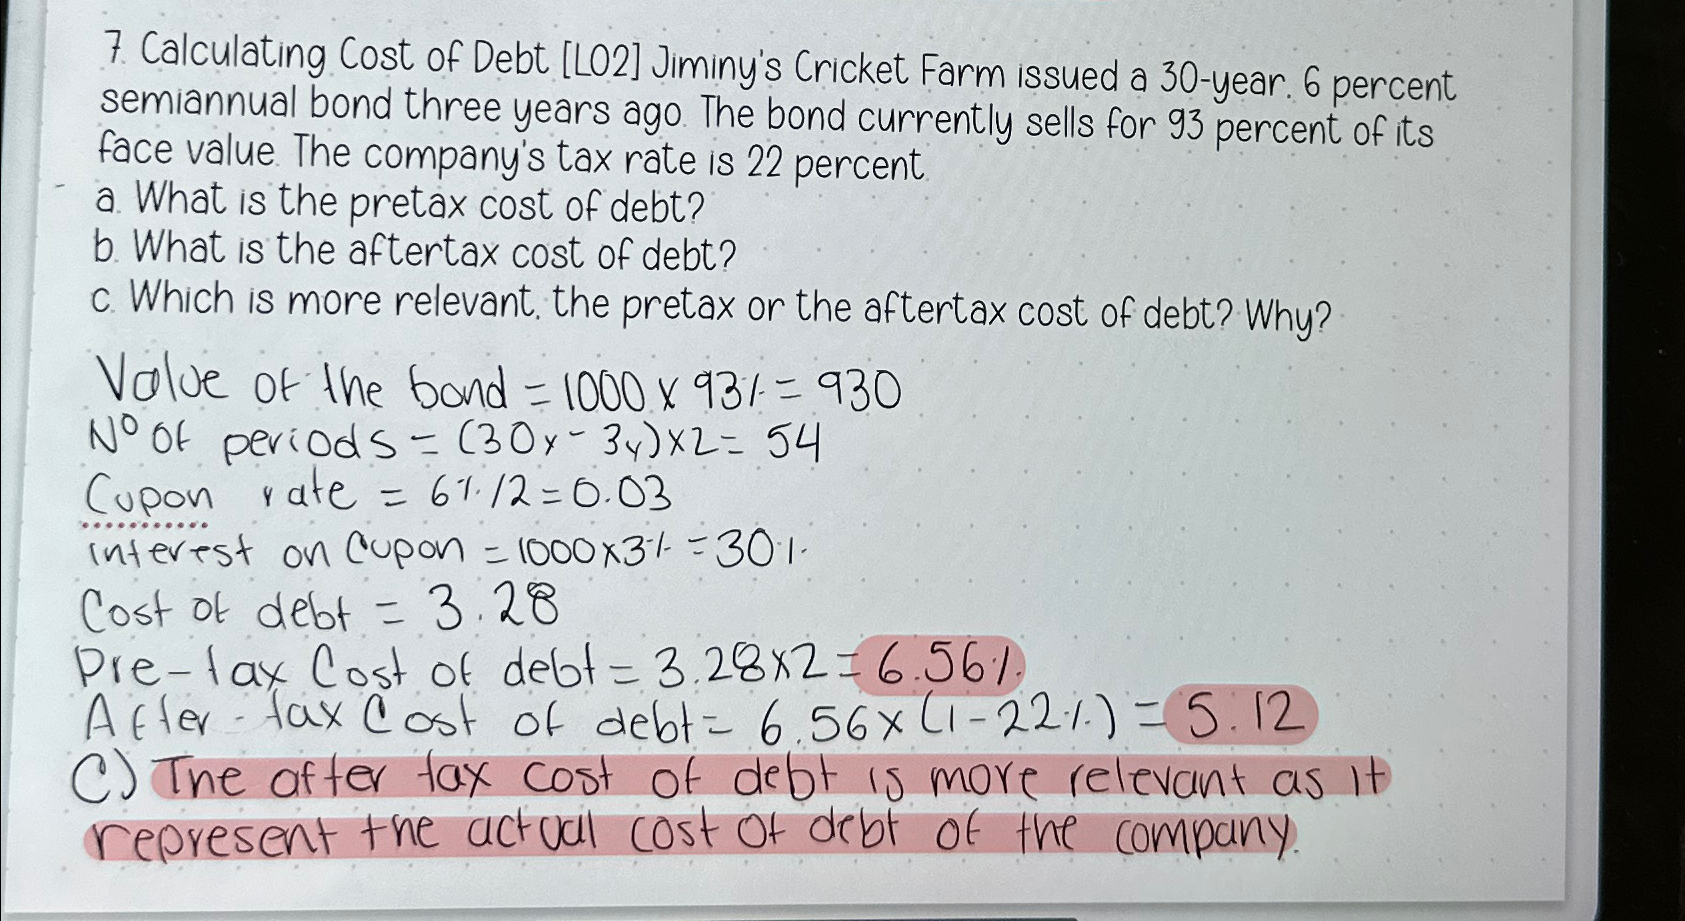 7. Calculating Cost of Debt [LO2] Jiminy's Cricket Farm issued a 30-year. 6 percent
semiannual bond three years ago. The bond currently sells for 93 percent of its
face value. The company's tax rate is 22 percent.
a. What is the pretax cost of debt?
b. What is the aftertax cost of debt?
c. Which is more relevant, the pretax or the aftertax cost of debt? Why?
Value of the bond = 1000 x 93% = 930
Nº of periods = (30y - 3y) x 2 = 54
Cupon rate = 6% / 2 = 0.03
interest on Cupon = 1000 x 3% = 30%
Cost of debt = 3.28
Pre-tax Cost of debt = 3.28 x 2 = 6.56%
After-tax Cost of debt = 6.56 x (1-22%) = 5.12
C) The after tax cost of debt is more relevant as it
represent the actual cost of debt of the company.